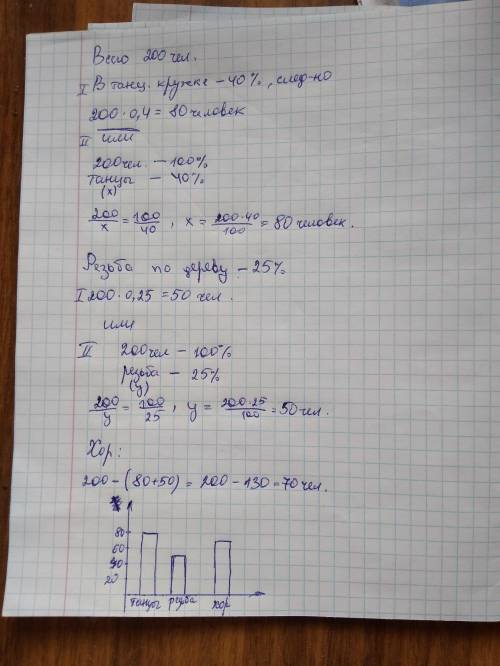 Всего 200 чел.
I В танц. кружке – 40%, след-но
200 · 0,4 = 80 человек
II или
200 чел. – 100%
танцы – 40%
(x)
200/x = 100/40, x = 200·40/100 = 80 человек.
Резьба по дереву – 25%
I 200 · 0,25 = 50 чел.
или
II 200 чел – 100%
резьба – 25%
(y)
200/y = 100/25, y = 200·25/100 = 50 чел.
Хор:
200 – (80+50) = 200 – 130 = 70 чел.
80
60
40
20
танцы резьба хор